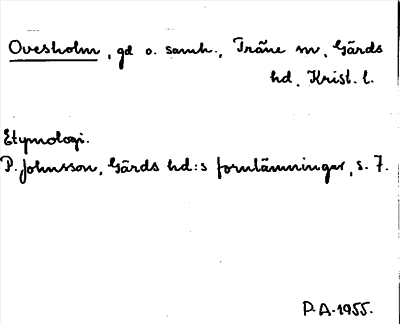 Ovesholm, gd o. samh., Träne sn, Gärds
hd, Krist. l.
Etymologi.
P. Johnsson, Gärds hd:s fornlämningar, s. 7.
P.A. 1955.